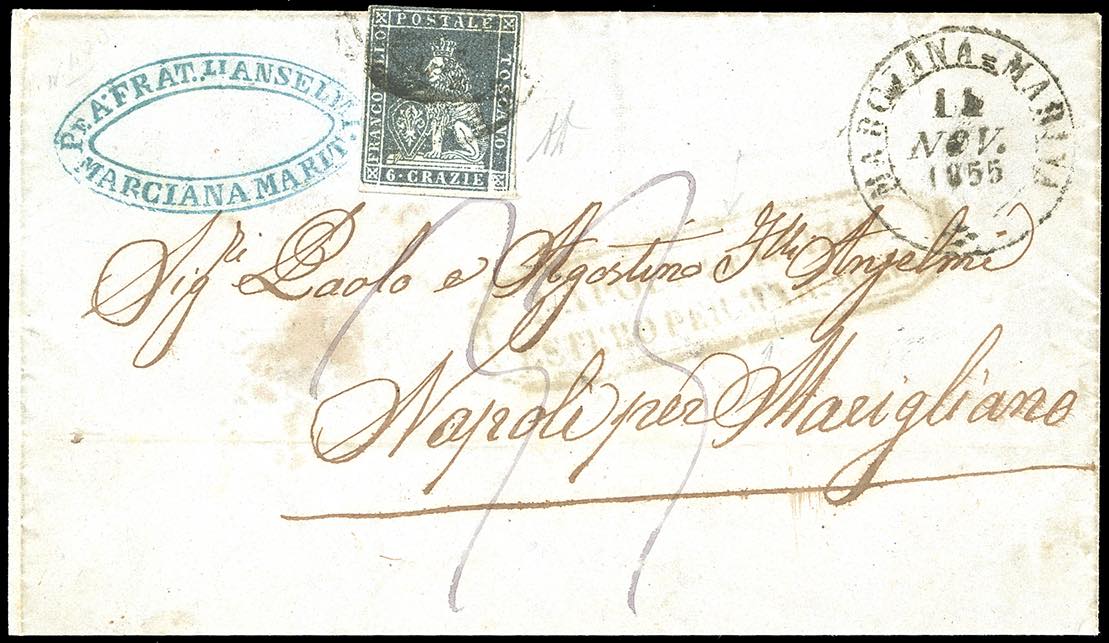 P. e A. FRAT.LLI ANSELMI
MARCIANA MARIT.
FRANCOBOLLO POSTALE TOSCANO
6·CRAZIE
MARCIANA=MARINA
11
NOV.
1855
Sig.ri Paolo e Agostino Flli Anselmi
Napoli per Marigliano